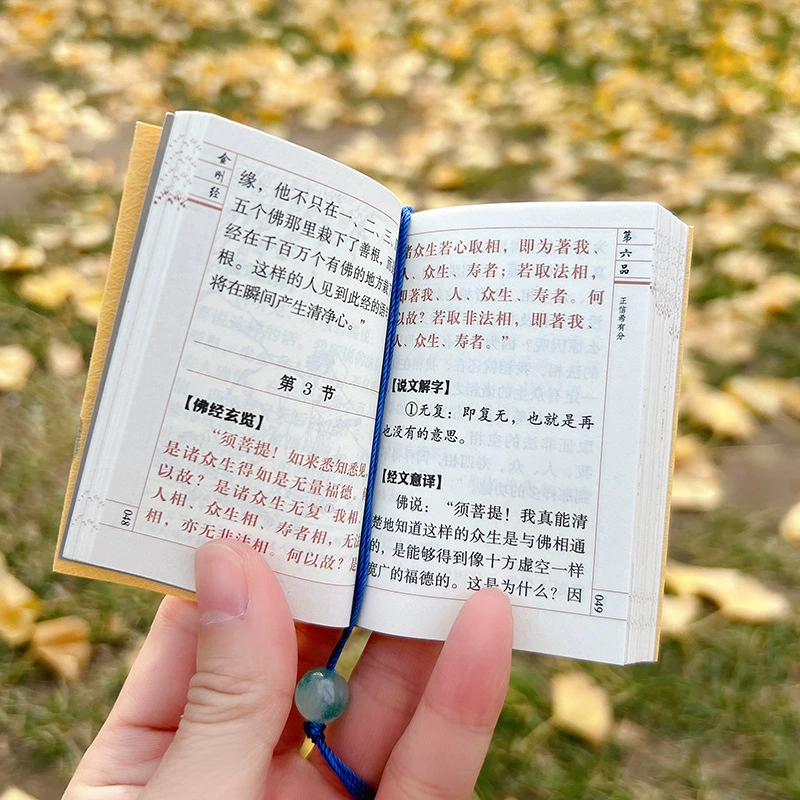 金刚经
缘，他不只在一、二、三、
五个佛那里栽下了善根，而
经在千百万个有佛的地方栽
根。这样的人见到此经的语
将在瞬间产生清净心。”
第 3 节
【佛经玄览】
“须菩提！如来悉知悉见
是诸众生得如是无量福德。何
以故？是诸众生无复①我相、
人相、众生相、寿者相，无法
相，亦无非法相。何以故？是
048
第六品
正信希有分
诸众生若心取相，即为著我、
人、众生、寿者；若取法相，
即著我、人、众生、寿者。何
以故？若取非法相，即著我、
人、众生、寿者。”
【说文解字】
①无复：即复无，也就是再
也没有的意思。
【经文意译】
佛说：“须菩提！我真能清
楚地知道这样的众生是与佛相通
的，是能够得到像十方虚空一样
宽广的福德的。这是为什么？因
049